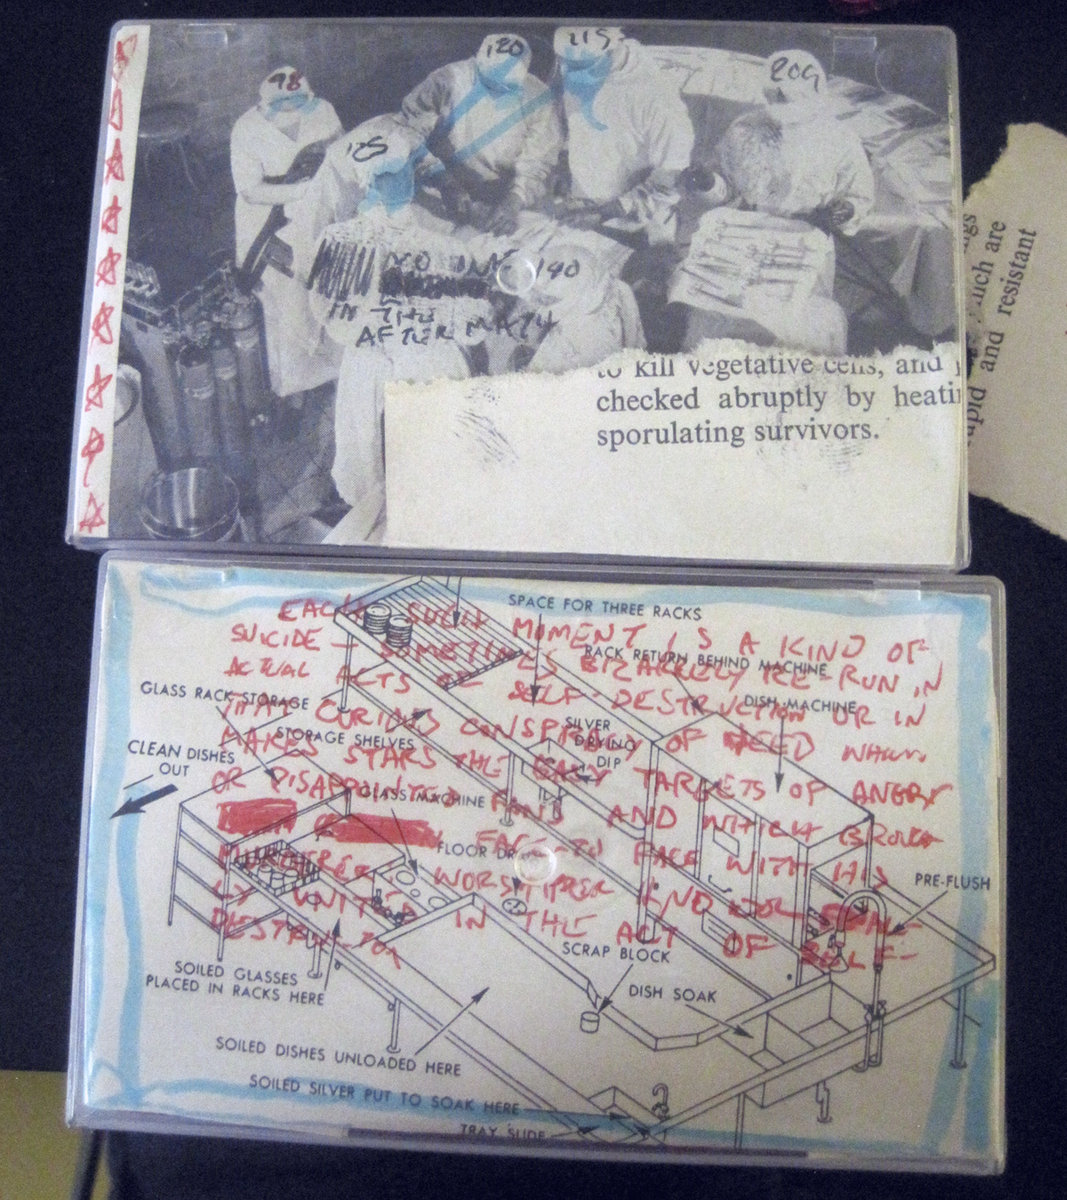 98
120
115
209
125
190
IN THE
AFTERMATH
to kill vegetative cells, and
checked abruptly by heati
sporulating survivors.
which are
rapid and resistant
SPACE FOR THREE RACKS
EACH SUCH MOMENT IS A KIND OF
SUICIDE - SOMETIMES BIZARRELY RE-RUN IN
RACK RETURN BEHIND MACHINE
ACTUAL ACTS OF SELF-DESTRUCTION OR IN
GLASS RACK STORAGE
DISH MACHINE
THAT CURIOUS CONSPIRACY OF NEED WHICH
SILVER
DRYING
DIP
STORAGE SHELVES
CLEAN DISHES
OUT
MAKES STARS THE EASY TARGETS OF ANGRY
OR DISAPPOINTED FANS AND WHICH
GLASS MACHINE
FLOOR DRAIN
FACE TO FACE WITH HIS
PRE-FLUSH
WORSHIPPER AND
UNITED IN THE ACT OF SELF-
DESTRUCTION
SCRAP BLOCK
SOILED GLASSES
PLACED IN RACKS HERE
DISH SOAK
SOILED DISHES UNLOADED HERE
SOILED SILVER PUT TO SOAK HERE
TRAY SLIDE